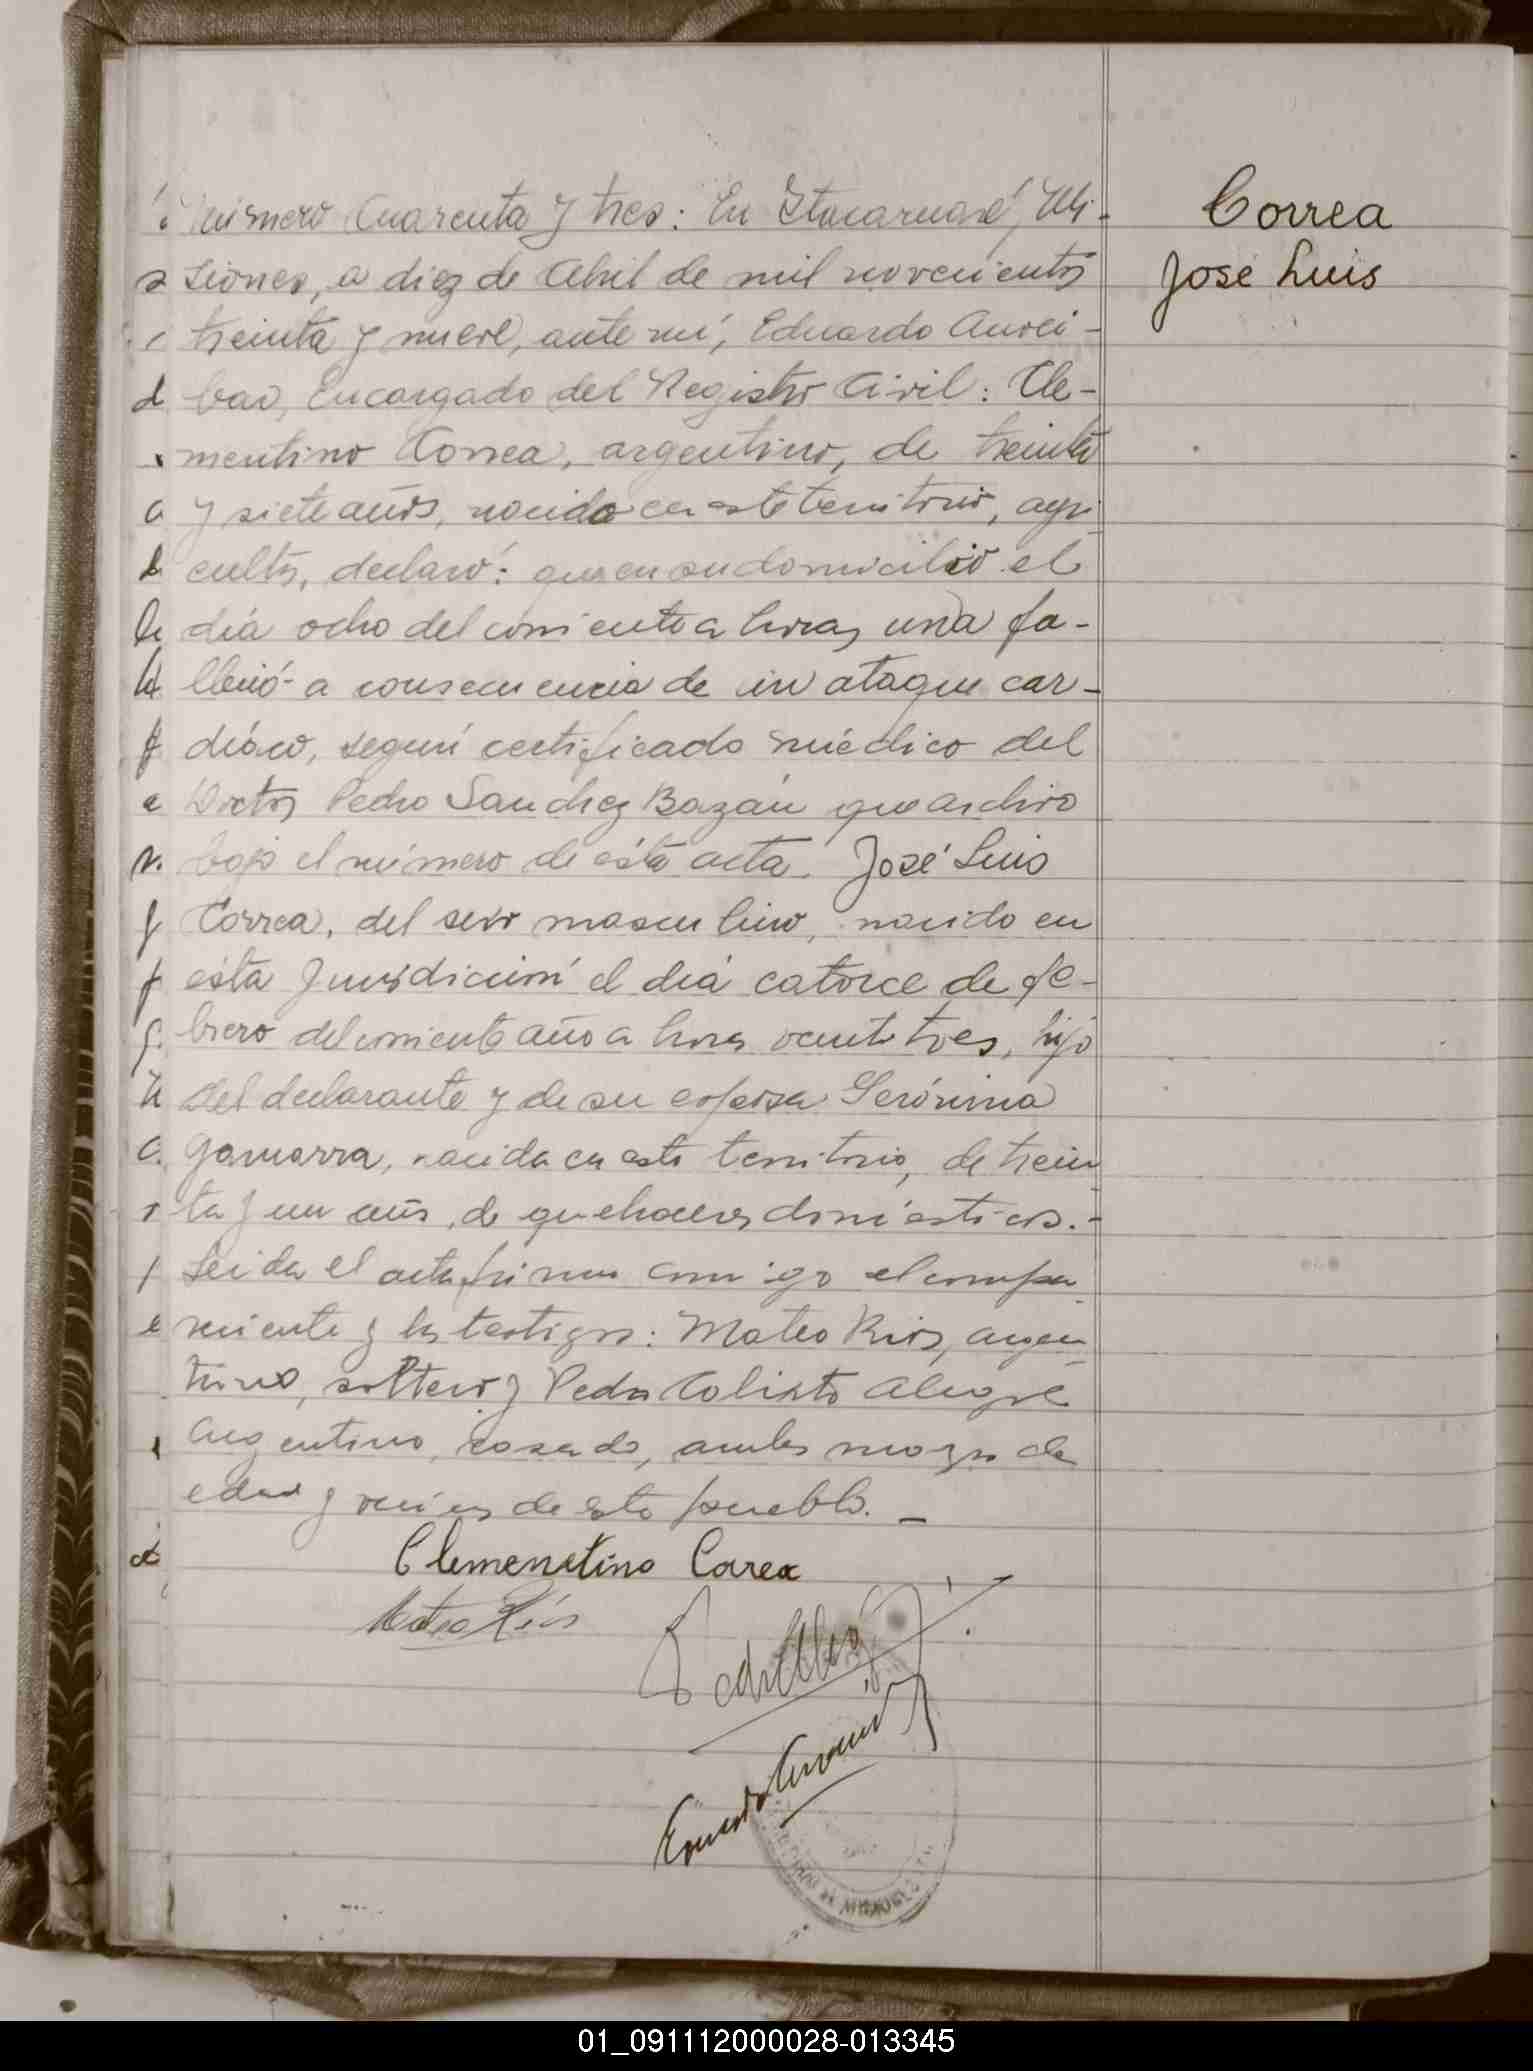 Número Cuarenta y tres: En Itacaruaré, Mi-
siones, a diez de Abril de mil novecientos
treinta y nueve, ante mí, Eduardo
Encargado del Registro Civil: Cle-
mentino Correa, argentino, de treinta
y siete años, nacido en este territorio, agri
cultor, declaró: que en su domicilio el
día ocho del corriente a horas una fa-
lleció a consecuencia de un ataque car-
díaco, según certificado médico del
Doctor Pedro Sanchez Bazán que archivo
bajo el número de ésta acta. José Luis
Correa, del sexo masculino, nacido en
ésta Jurisdicción el día catorce de fe-
brero del corriente año a horas veintitres, hijo
del declarante y de su esposa Gerónima
Gamarra, nacida en este territorio, de trein
ta y un años, de quehaceres domésticos.-
Leida el acta firman conmigo el compa-
reciente y los testigos: Mateo Rios, argen-
tino, soltero y Pedro Calixto Alegre
Argentino, casado, ambos mayores de
edad y vecinos de este pueblo. -
Clemenetino Corea
Mateo Ríos
Correa
José Luis
01_091112000028-013345